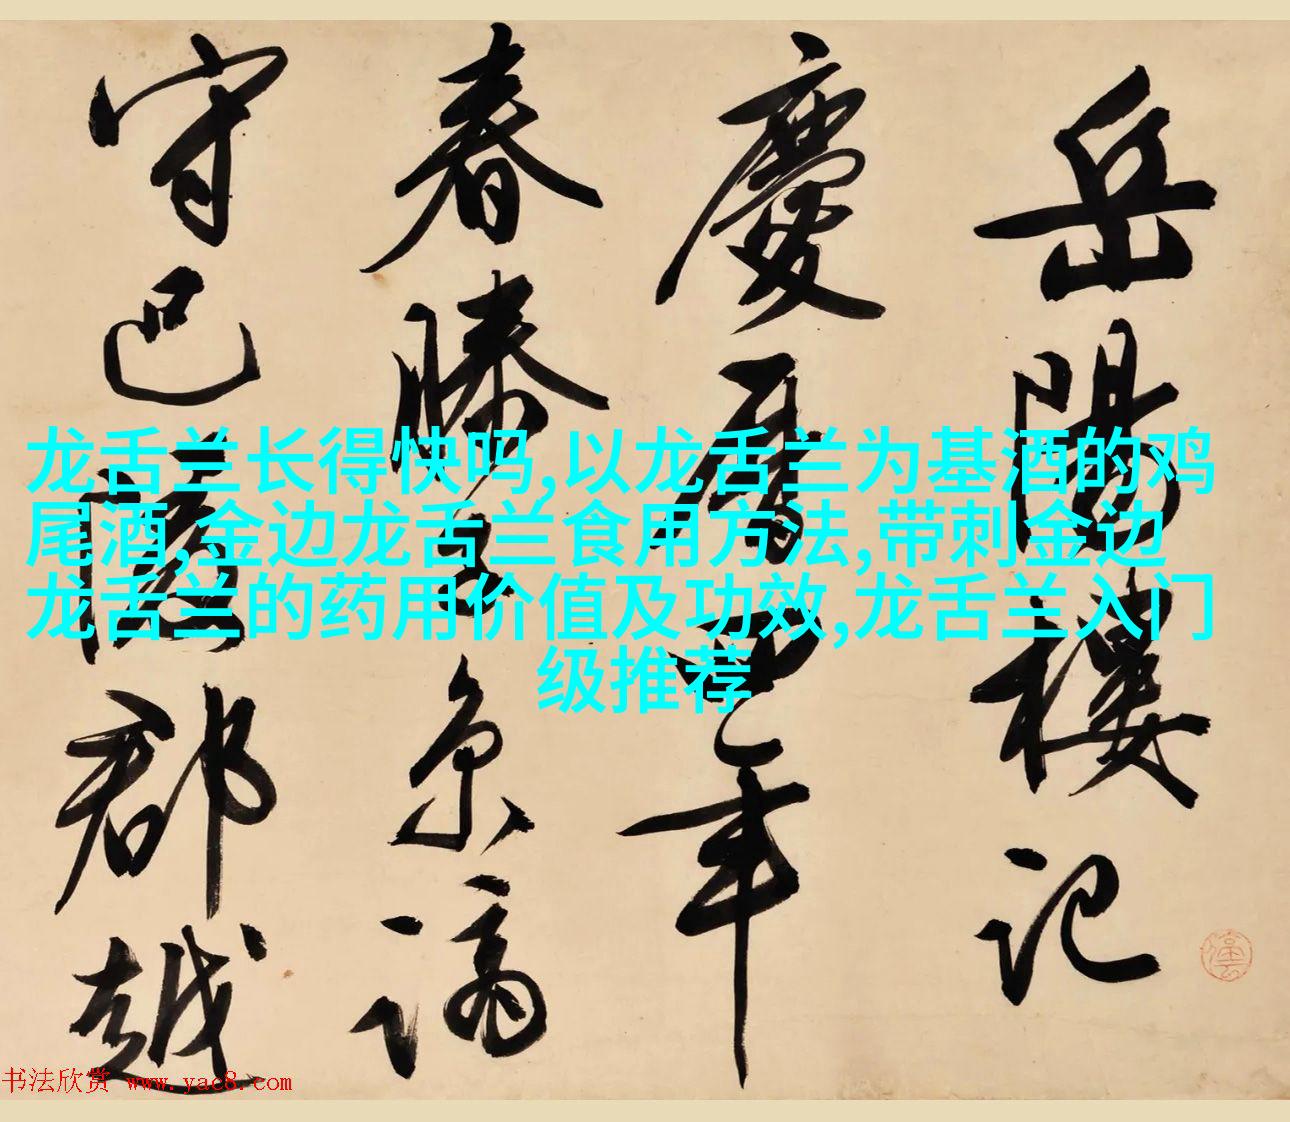 岳陽樓記
慶曆四年
春滕子京謫
守巴陵郡越
龙舌兰长得快吗,以龙舌兰为基酒的鸡
尾酒,金边龙舌兰食用方法,带刺金边
龙舌兰的药用价值及功效,龙舌兰入门
级推荐
书法欣赏 www.yac8.com